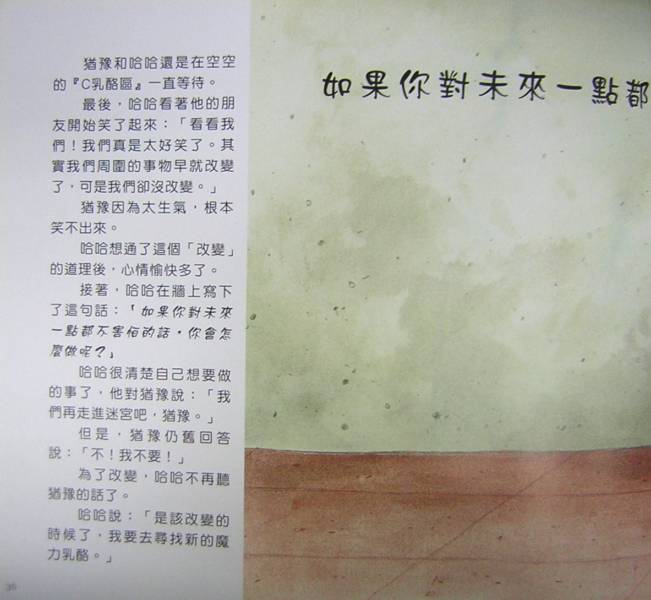 猶豫和哈哈還是在空空
的『C乳酪區』一直等待。
最後，哈哈看著他的朋
友開始笑了起來：「看看我
們！我們真是太好笑了。其
實我們周圍的事物早就改變
了，可是我們卻沒改變。」
猶豫因為太生氣，根本
笑不出來。
哈哈想通了這個「改變」
的道理後，心情愉快多了。
接著，哈哈在牆上寫下
了這句話：「如果你對未來
一點都不害怕的話，你會怎
麼做呢？」
哈哈很清楚自己想要做
的事了，他對猶豫說：「我
們再走進迷宮吧，猶豫。」
但是，猶豫仍舊回答
說：「不！我不要！」
為了改變，哈哈不再聽
猶豫的話了。
哈哈說：「是該改變的
時候了，我要去尋找新的魔
力乳酪。」
36
如果你對未來一點都